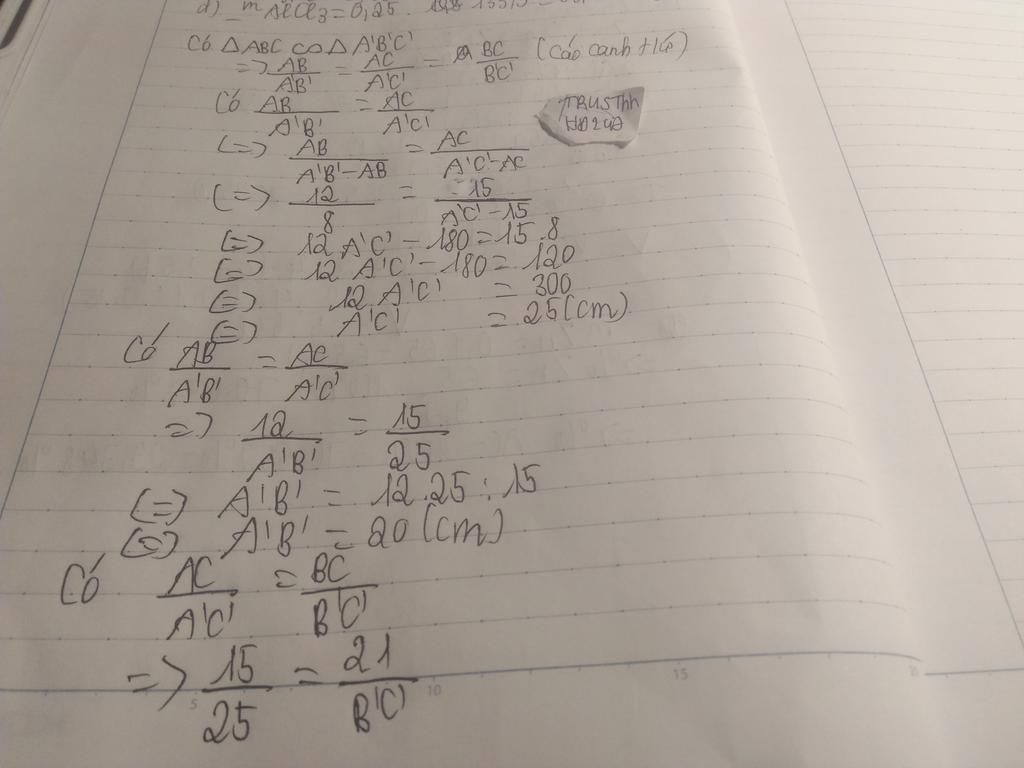 d) m AlCl3 = 0,25 . 133,5 =
Có △ABC ∽ △A'B'C'
=> AB/AB' = AC/A'C' = BC/BC' (Các cạnh t/lệ)
Có AB/A'B' = AC/A'C'
TRUSThh
HD29A
(=> AB/A'B'-AB = AC/A'C'-AC
(=> 12/8 = 15/A'C'-15
(=> 12 A'C' - 180 = 15.8
(=> 12 A'C' - 180 = 120
(=> 12 A'C' = 300
(=> A'C' = 25 (cm)
Có AB/A'B' = AC/A'C'
=> 12/A'B' = 15/25
(=> A'B' = 12.25 : 15
(=> A'B' = 20 (cm)
Có AC/A'C' = BC/B'C'
=> 15/25 = 21/B'C'
5 10 15